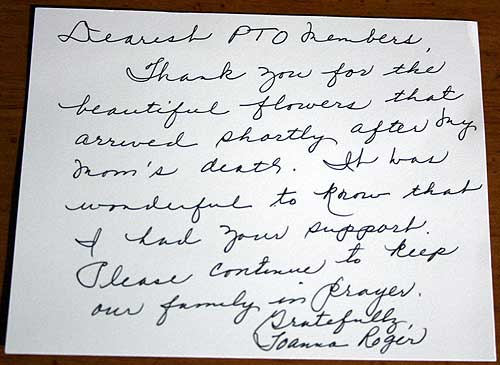 Dearest PTO Members,
Thank you for the
beautiful flowers that
arrived shortly after my
Mom's death. It was
wonderful to know that
I had your support.
Please continue to keep
our family in prayer.
Gratefully,
Joanna Roger